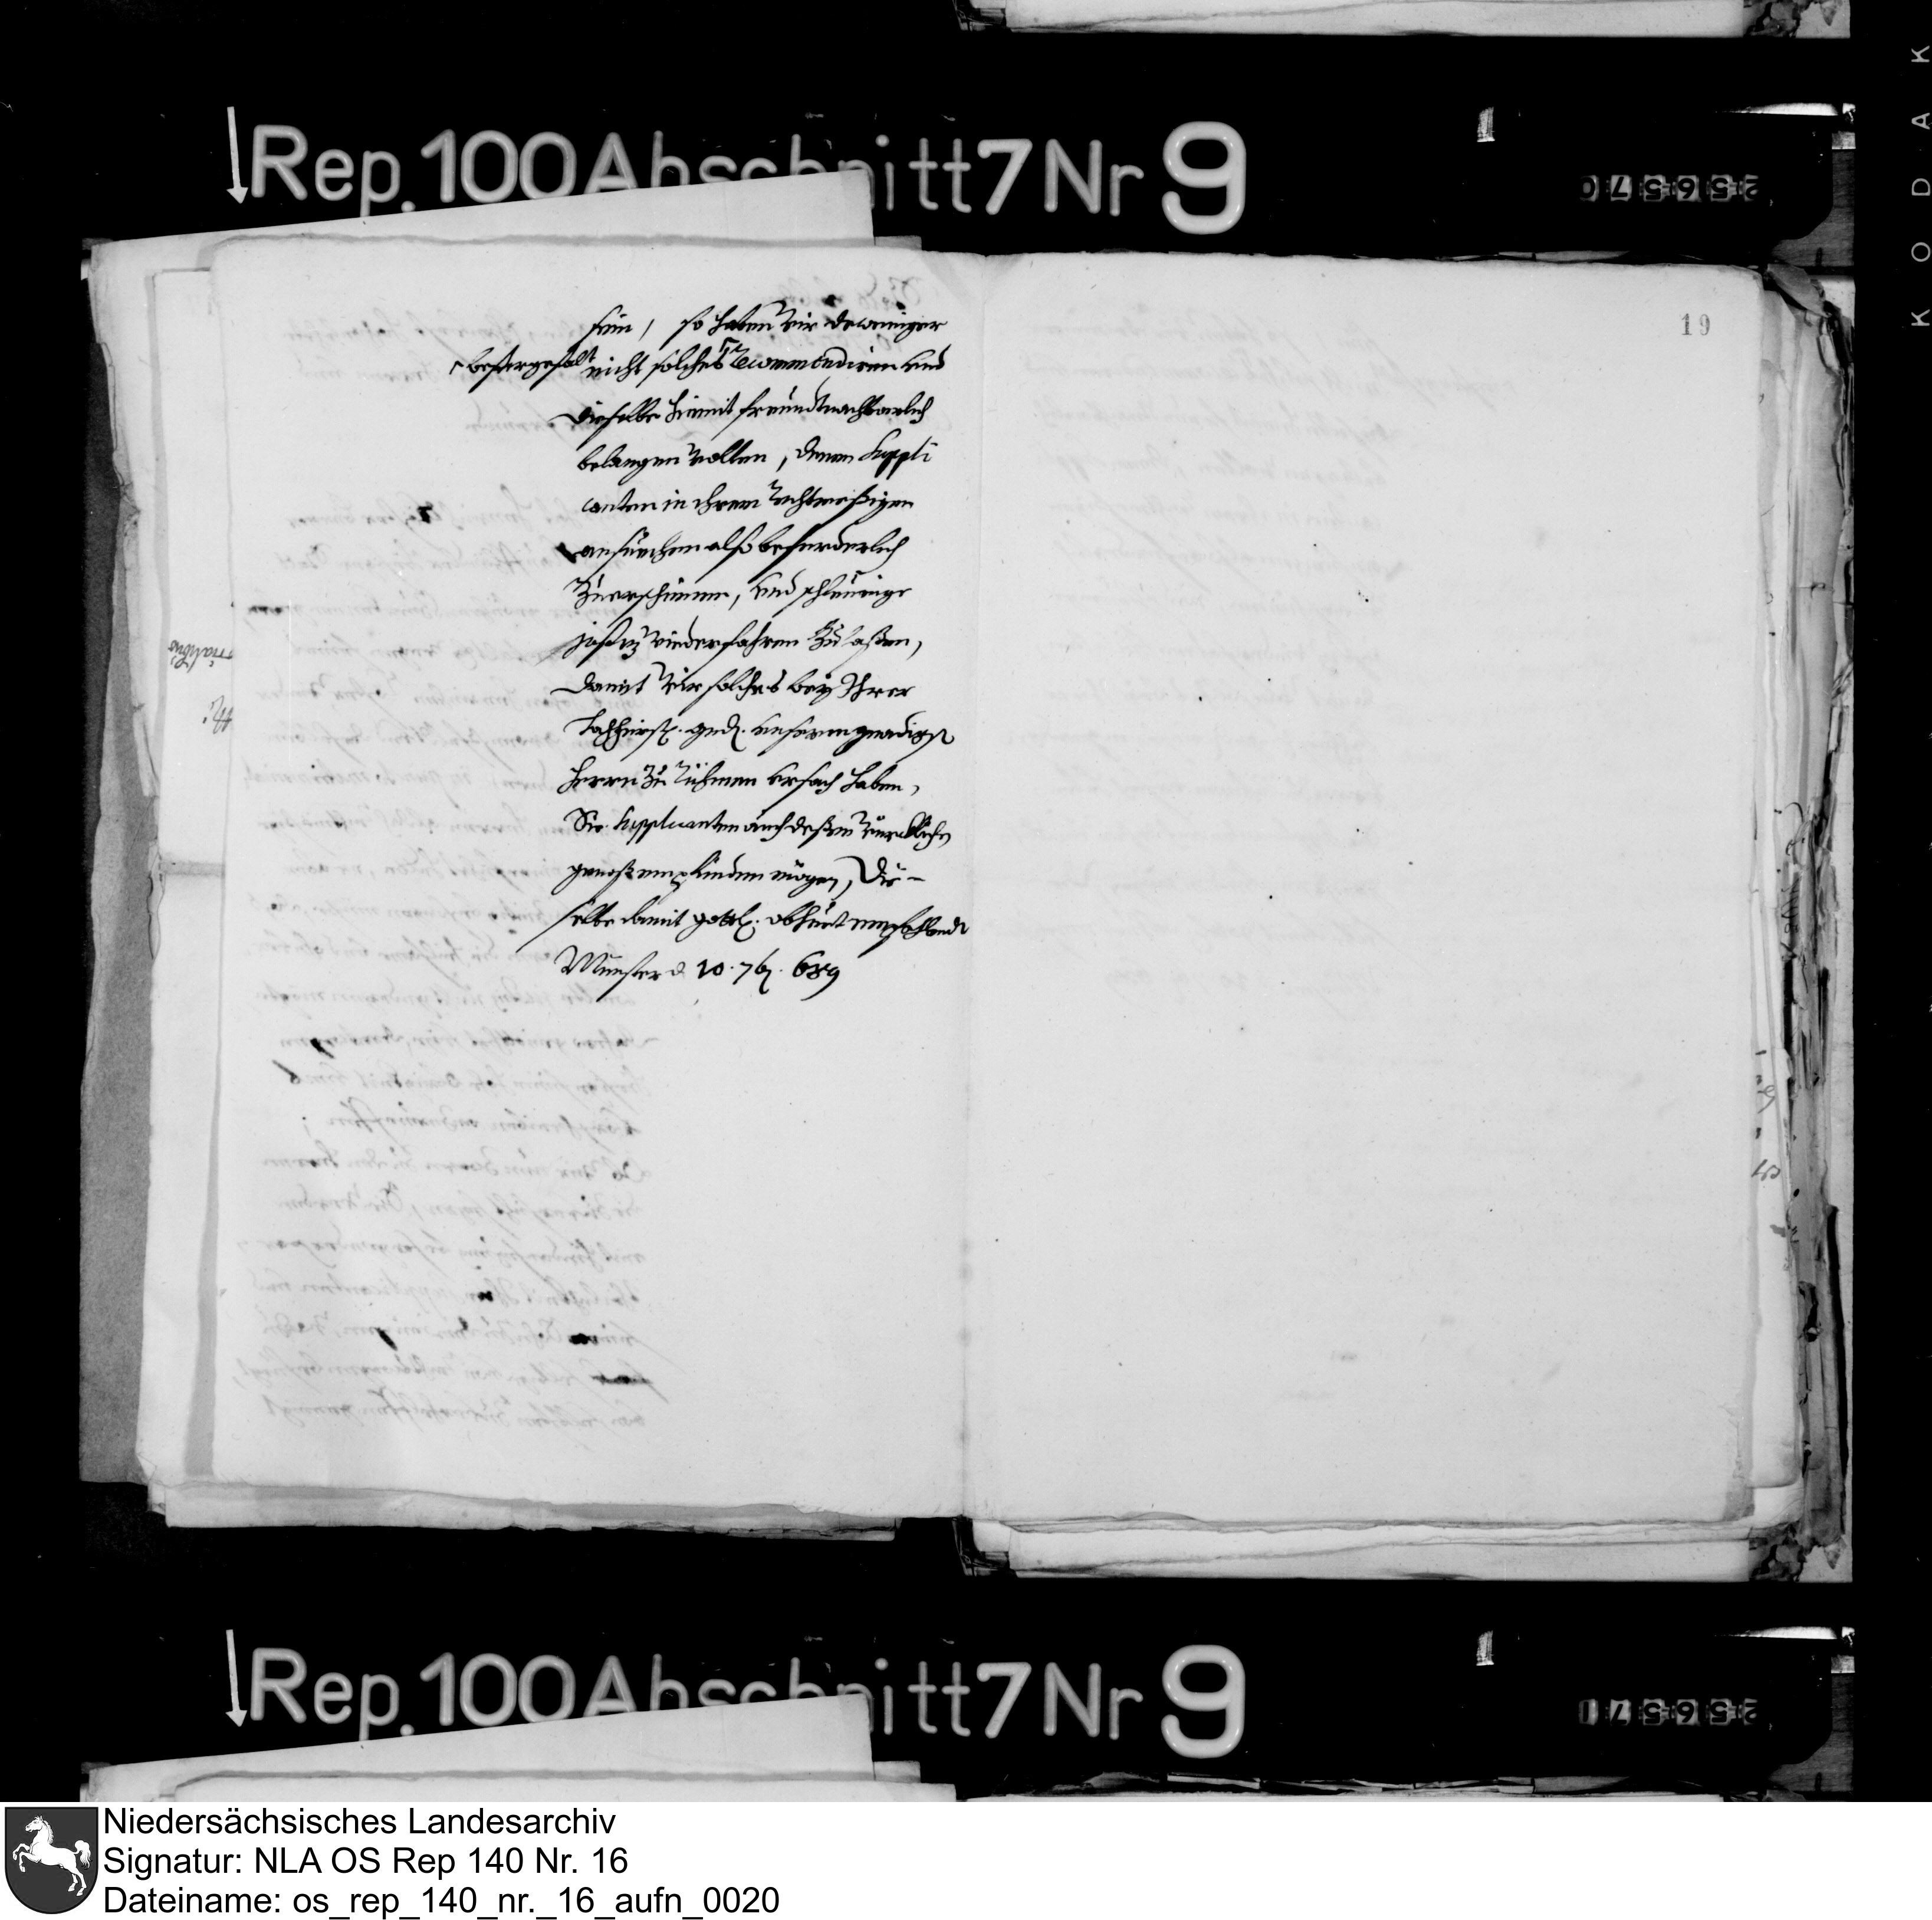 Rep. 100 Abschnitt 7 Nr 9
256570
KODAK
19
sein, so haben wir deweniger
bestergestalt
nicht solches recommendiren und
dieselbe hiemit freundtnachbarlich
belangen wollen, denen Suppli
canten in ihrem rechtmeßigen
ansuechen also befurderlich
zuerscheinen, und schleunige
justiz wiederfahren zu laßen,
damit wir solches bey Ihrer
hochfürstl. gnd. unserem gnädigst
herrn zu rühmen ursach haben,
Sie Supplicanten auch deßen würckliche
genoß empfinden mögen, Die-
selbe damit göttl. obhuet empfehlend
Münster d. 10. 7b. 689
Rep. 100 Abschnitt 7 Nr 9
256571
Niedersächsisches Landesarchiv
Signatur: NLA OS Rep 140 Nr. 16
Dateiname: os_rep_140_nr._16_aufn_0020